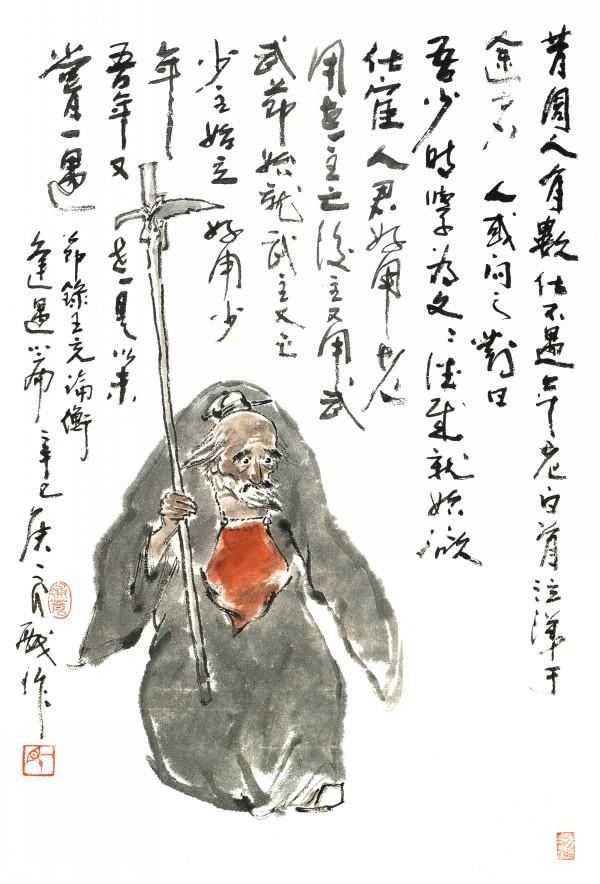 昔周人有數仕不遇年老白首泣涕于
途者人或問之對曰
吾少時學為文〻德成就始欲
仕宦人君好用老
用老主亡後主又用武
武節始就武主又亡
少主始立好用少
年
吾年又老是以未
嘗一遇
節錄王充論衡
逢遇篇辛巳作